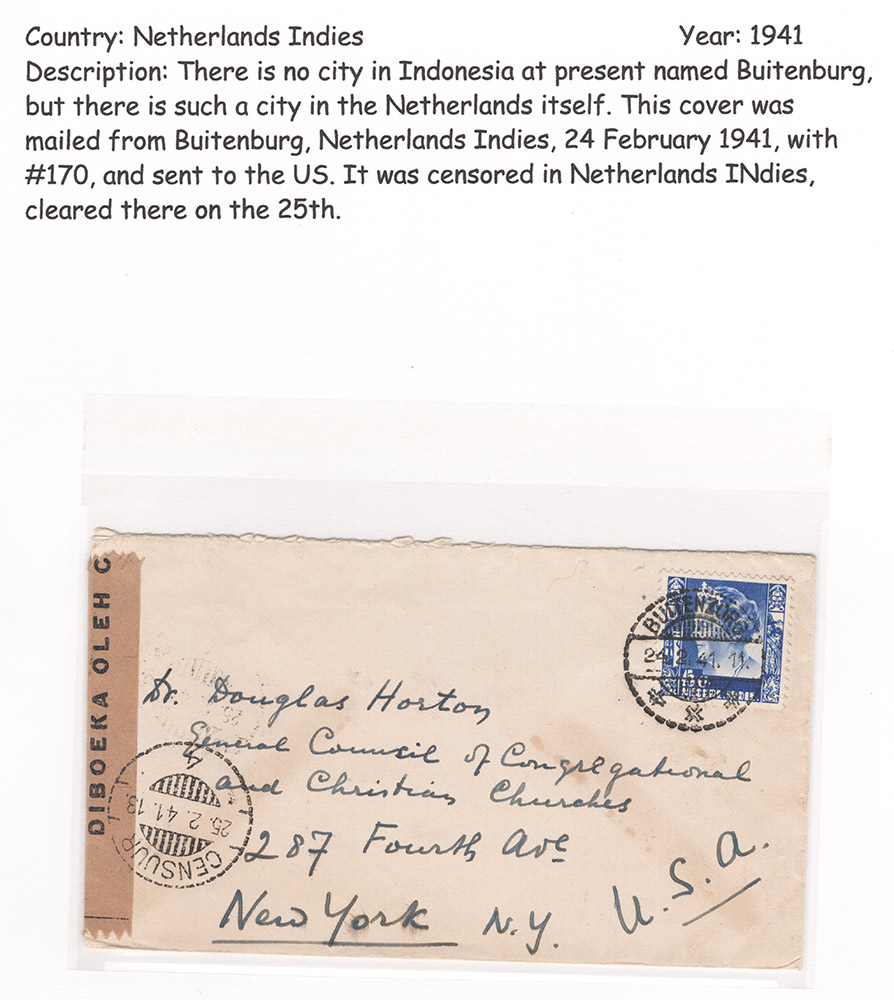 Country: Netherlands Indies Year: 1941
Description: There is no city in Indonesia at present named Buitenburg,
but there is such a city in the Netherlands itself. This cover was
mailed from Buitenburg, Netherlands Indies, 24 February 1941, with
#170, and sent to the US. It was censored in Netherlands INdies,
cleared there on the 25th.
DIBOEKA OLEH C
BUITENZORG
24.2.41.11.
Dr. Douglas Horton
General Council of Congregational
and Christian Churches
287 Fourth Ave
New York N.Y. U.S.A.
4
25.2.41.13.
CENSUUR